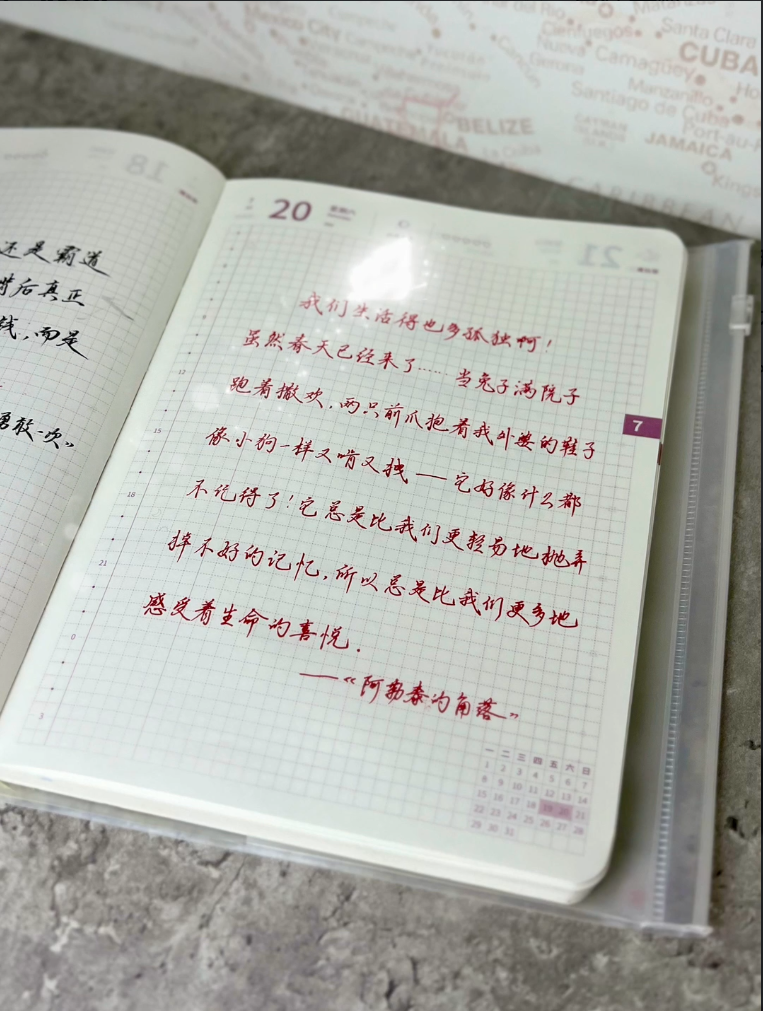 Mexico City
Cienfuegos
Santa Clara
CUBA
Camagüey
Manzanillo
Santiago de Cuba
GUATEMALA
BELIZE
JAMAICA
CARIBBEAN
18
还是霸道
背后真正
钱,而是
勇敢一次”
20 星期六
21
我们生活得也多孤独啊!
虽然春天已经来了……当兔子满院子
跑着撒欢,两只前爪抱着我外婆的鞋子
像小狗一样又啃又拽——它好像什么都
不记得了!它总是比我们更轻易地抛弃
掉不好的记忆,所以总是比我们更多地
感受着生命的喜悦.
——“阿勒泰的角落”
7
12
15
18
21
0
3
一 二 三 四 五 六 日
1 2 3 4 5 6 7
8 9 10 11 12 13 14
15 16 17 18 19 20 21
22 23 24 25 26 27 28
29 30 31